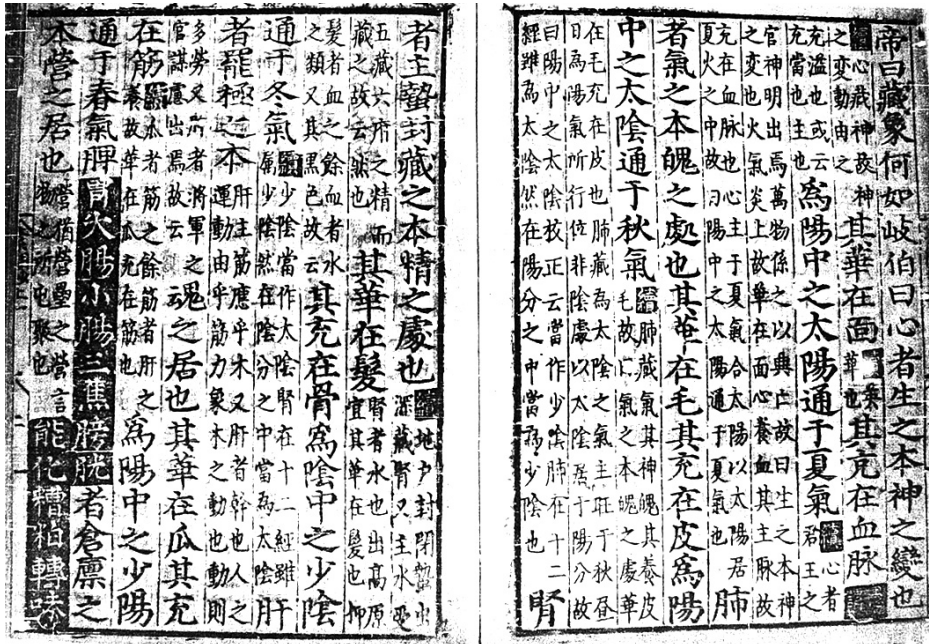 帝曰藏象何如岐伯曰心者生之本神之變也
心藏神故神之變動由之其華在面華采也其充在血脉
充溢也或云充當也主也爲陽中之太陽通于夏氣心者君主之
官神明出焉萬物係之以興亡故曰生之本神之變也火氣炎上故華在面心養血其主脉故
充在血脉也心主于夏氣合太陽以太陽居夏火之中故曰陽中之太陽通于夏氣也肺
者氣之本魄之處也其華在毛其充在皮爲陽
中之太陰通于秋氣續肺藏氣其神魄其養皮毛故曰氣之本魄之處華
在毛充在皮也肺藏爲太陰之氣主旺于秋晝日爲陽氣所行位非陰處以太陰居于陽分故
曰陽中之太陰校正云當作少陰肺在十二經雖爲太陰然在陽分之中當爲少陰也腎
者主蟄封藏之本精之處也地戶封閉蟄虫深藏腎又主水受
五藏六府之精而藏之故云然也其華在髮腎者水也出高原宜其華在髮也抑
髮者血之餘血者水之類又其黑色故云其充在骨爲陰中之少陰
通于冬氣少陰當作太陰腎在十二經雖于屬少陰然在陰分之中當爲太陰肝
者罷極之本肝主筋應乎木又肝者幹也人之運動由乎筋力象木之動也動則
多勞又肝者將軍之官謀慮出焉故云魂之居也其華在爪其充
在筋爪者筋之餘筋者肝之養故華在爪充在筋也爲陽中之少陽
通于春氣脾胃大腸小腸三焦膀胱者倉廩之
本營之居也營猶營壘之營言物之所屯聚也能化糟粕轉味